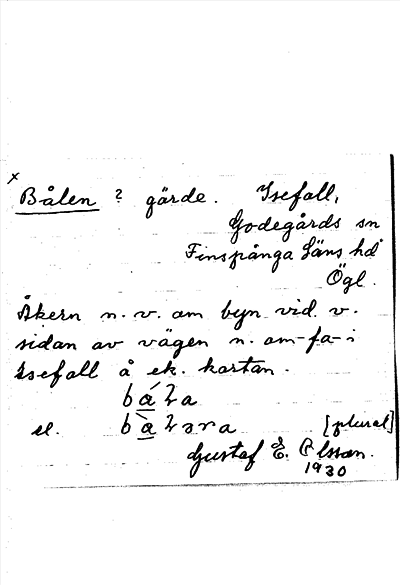 x Bålen ? gärde. Isefall,
Godegårds sn
Finspånga Läns hd
Ögl.
Åkern n. v. om byn vid v.
sidan av vägen n. om -fa- i
Isefall å ek. kartan.
bala
el. balara [plural]
Gustaf E. Olsson.
1930